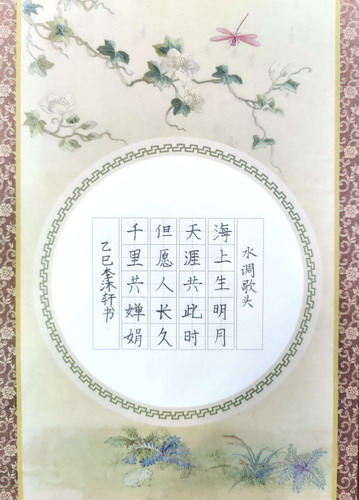 水调歌头
海上生明月
天涯共此时
但愿人长久
千里共婵娟
乙巳李沫轩书